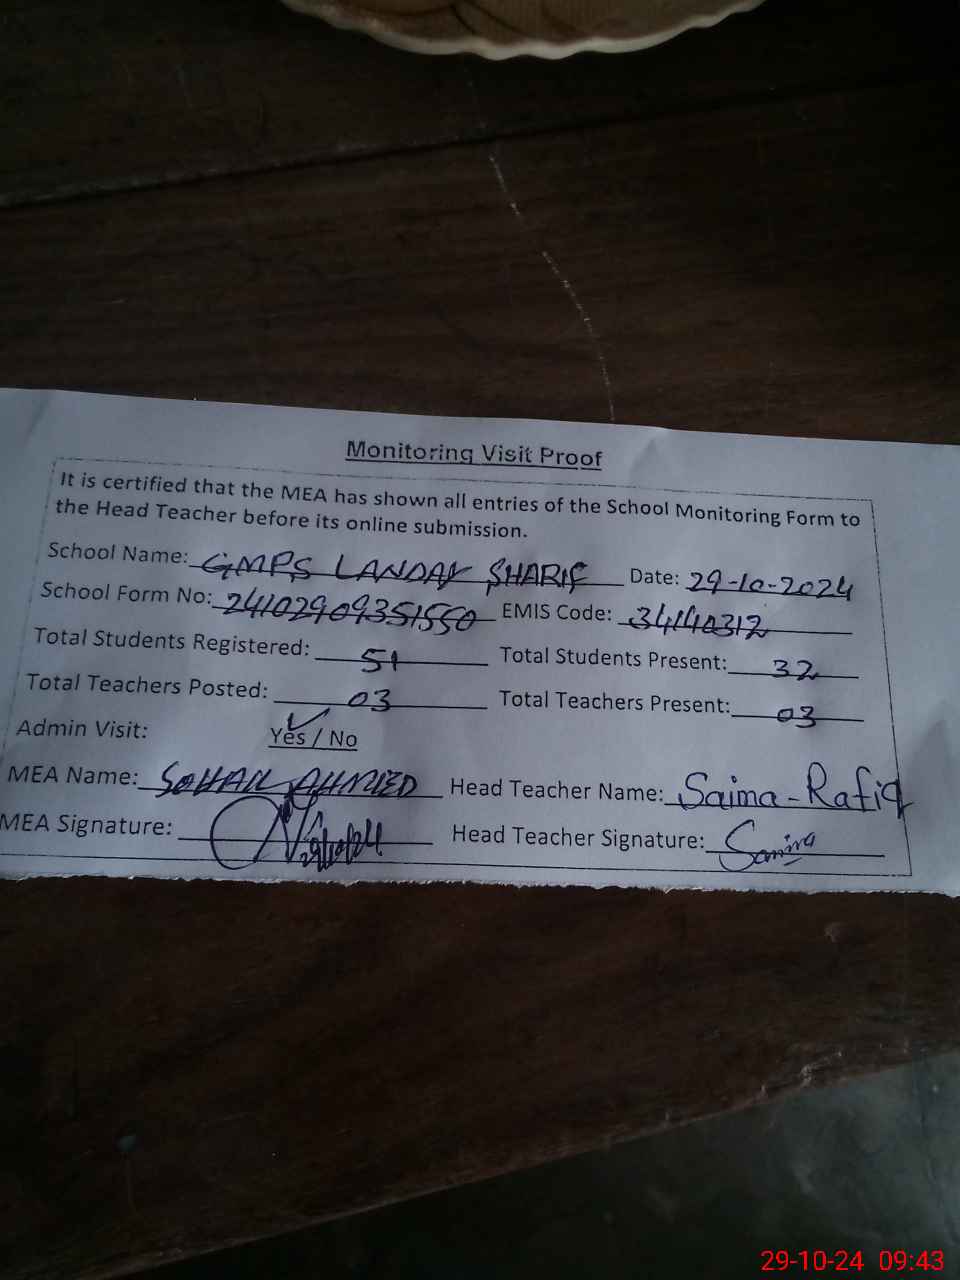 Monitoring Visit Proof
It is certified that the MEA has shown all entries of the School Monitoring Form to
the Head Teacher before its online submission.
School Name: GMPS LANDAY SHARIF Date: 29-10-2024
School Form No: 24102909351550 EMIS Code: 34140312
Total Students Registered: 51 Total Students Present: 32
Total Teachers Posted: 03 Total Teachers Present: 03
Admin Visit: Yes / No
MEA Name: SOHAIL AHMED Head Teacher Name: Saima-Rafiq
MEA Signature: Head Teacher Signature: Saima
29-10-24 09:43